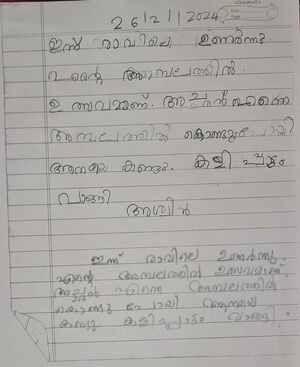 26/2/2024
ഇന്ന് രാവിലെ ഉണർന്നു.
എന്റെ അമ്പലത്തിൽ.
ഉത്സവമാണ്. അച്ഛൻ എന്നെ
അമ്പലത്തിൽ കൊണ്ടുപോയി
ആനയെ കണ്ടു. കളിപ്പാട്ടം
വാങ്ങി
അശ്വിൻ
ഇന്ന് രാവിലെ ഉണർന്നു.
എന്റെ അമ്പലത്തിൽ ഉത്സവമാണ്.
അച്ഛൻ എന്നെ അമ്പലത്തിൽ
കൊണ്ടു പോയി. ആനയെ
കണ്ടു. കളിപ്പാട്ടം വാങ്ങി.